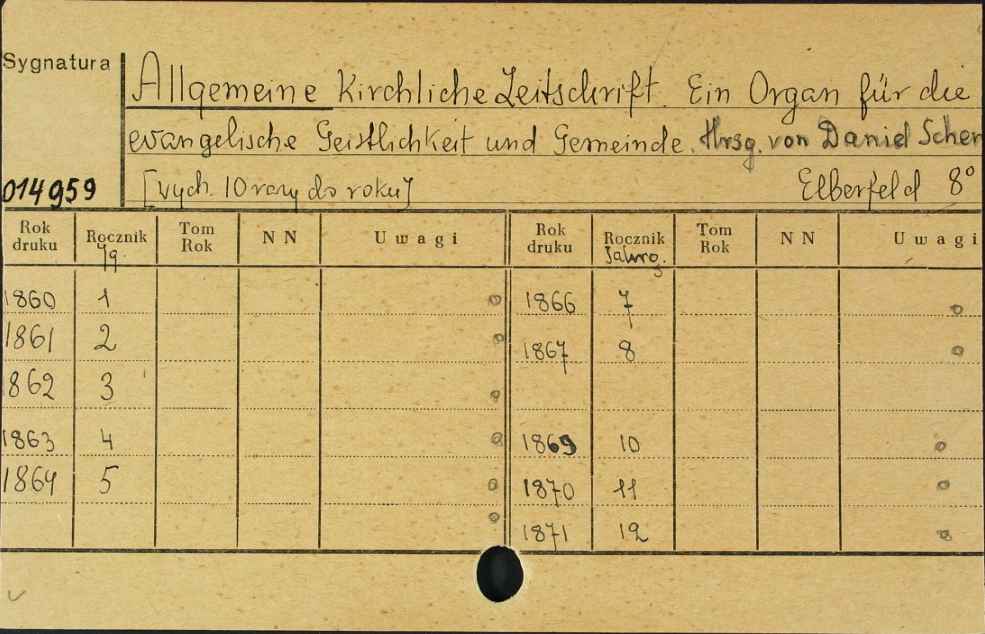 Sygnatura
Allgemeine Kirchliche Zeitschrift. Ein Organ für die
evangelische Geistlichkeit und Gemeinde. Hrsg. von Daniel Schen
014959 [wych. 10 razy do roku] Elberfeld 8°
Rok druku Rocznik Tom Rok NN Uwagi Rok druku Rocznik Tom Rok NN Uwagi
Jg. Jahrg.
1860 1 1866 7
1861 2 1867 8
1862 3
1863 4 1869 10
1864 5 1870 11
1871 12